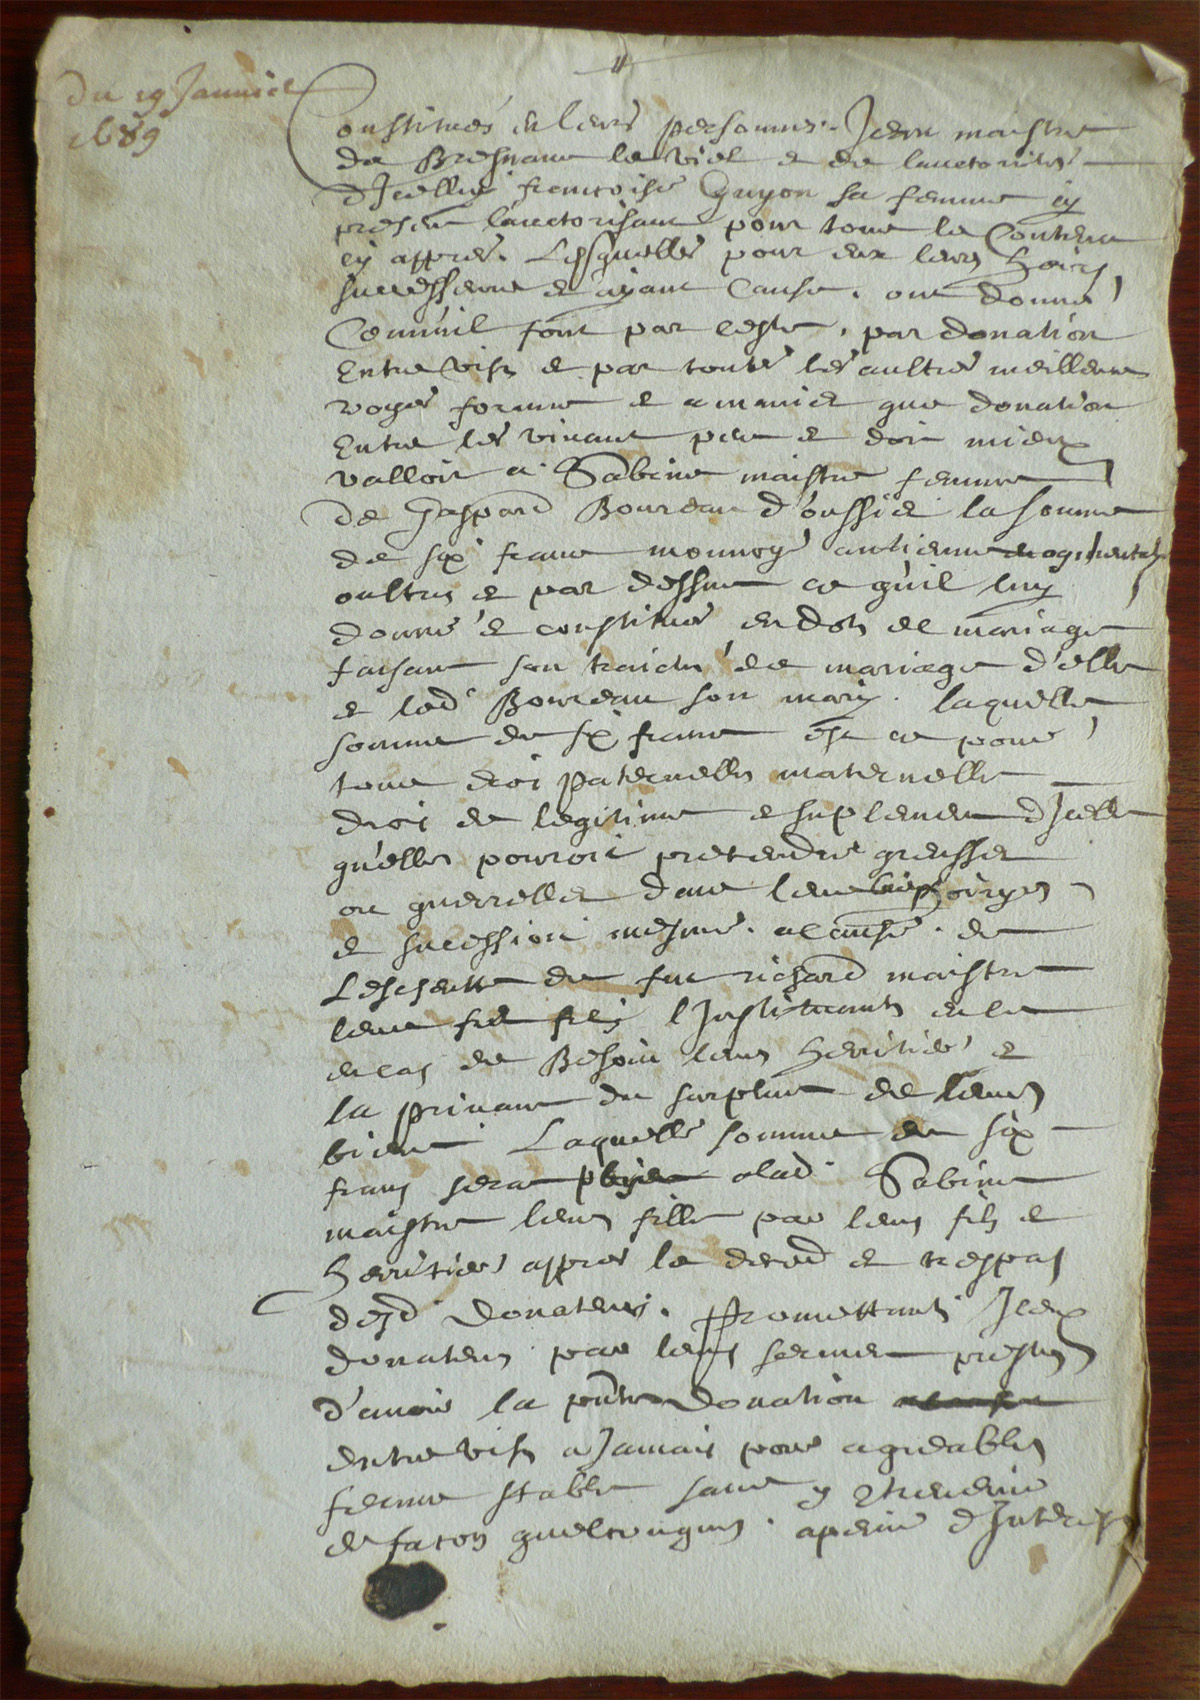 du 19 Janvier
1689
Constitués en leurs personnes Jean maistre
de Bresnans le viel et de lauctorité
d'Icelluy francoise Guyon sa femme cy
presen lauctorisant pour tout le Contenu
cy appres. Lesquelles pour eux leurs hoirs
successeurs et ayant Cause. ont donné
Comm'il font par ceste, par donation
Entre vifz et par toute les aultres meilleure
voyes forme et a manier que donation
Entre les vivant peu et doit mieux
valloir a Sabine maistre femme
de Gaspard Boureau d'oussier la somme
de six franc monnoye antienne
oultres et par dessus ce qu'il luy
donné et constitué en dot de mariage
faisant son traicté de mariage d'elle
et led' Boureau son mary. laquelle
somme de six franc est ce pour
tout droi paternelles maternelle
droi de legitime et suplement d'Icelle
qu'elles pouroit pretendre
ou querreller dans leur hoiryes
et sucession mesme. a cause. de
Lescheutte de fut richard maistre
leur fut filz l'Instituants en le
en cas de Besoin leurs heritier et
la privant du surplus de leurs
biens Laquelle somme de six
frans sera payer alad' Sabine
maistre leurs fille par leurs filz et
heritier appres le deced et trespas
desd' Donateurs. Promettants Iceux
donateurs par leurs serment prestes
d'avoir la pnte Donation
entre vifz a Jamais pour agreables
ferme stable sans y
de facon quelconques. a peine d'Interestz